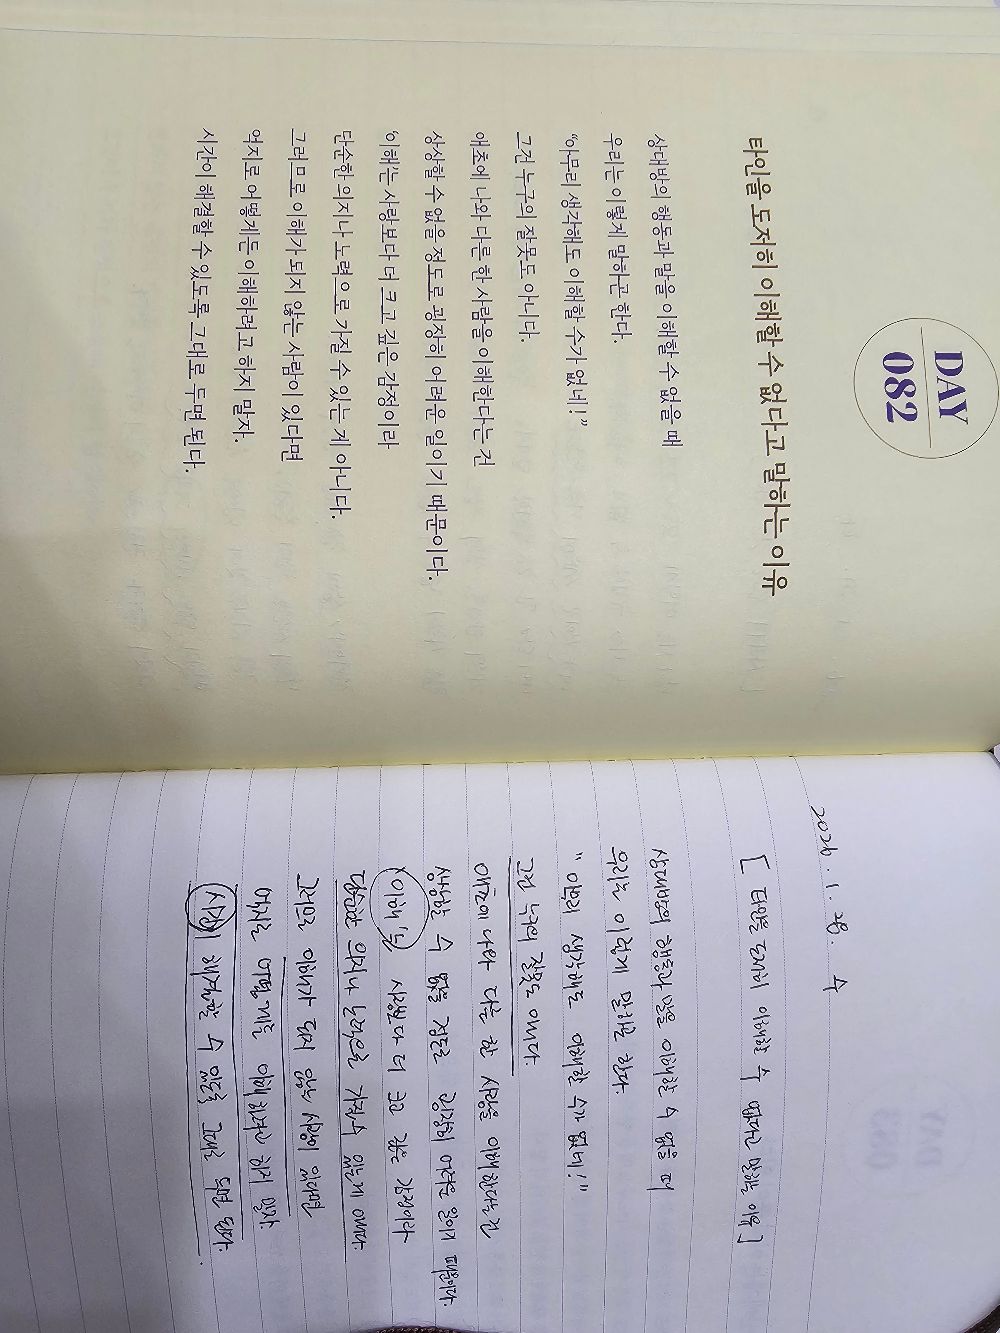 DAY
082
타인을 도저히 이해할 수 없다고 말하는 이유
상대방의 행동과 말을 이해할 수 없을 때
우리는 이렇게 말하곤 한다.
“아무리 생각해도 이해할 수가 없네!”
그건 누구의 잘못도 아니다.
애초에 나와 다른 한 사람을 이해한다는 건
상상할 수 없을 정도로 굉장히 어려운 일이기 때문이다.
‘이해’는 사랑보다 더 크고 깊은 감정이라
단순한 의지나 노력으로 가질 수 있는 게 아니다.
그러므로 이해가 되지 않는 사람이 있다면
억지로 어떻게든 이해하려고 하지 말자.
시간이 해결할 수 있도록 그대로 두면 된다.
2026. 1. 수
[ 타인을 도저히 이해할 수 없다고 말하는 이유 ]
상대방의 행동과 말을 이해할 수 없을 때
우리는 이렇게 말하곤 한다.
"아무리 생각해도 이해할 수가 없네!"
그건 누구의 잘못도 아니다.
애초에 나와 다른 한 사람을 이해한다는 건
상상할 수 없을 정도로 굉장히 어려운 일이기 때문이다.
'이해'는 사랑보다 더 크고 깊은 감정이라
단순한 의지나 노력으로 가질 수 있는 게 아니다.
그러므로 이해가 되지 않는 사람이 있다면
억지로 어떻게든 이해하려고 하지 말자.
시간이 해결할 수 있도록 그대로 두면 된다.